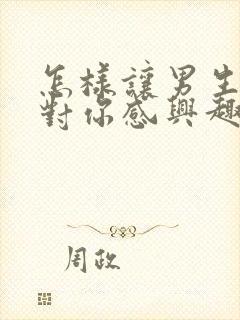 怎樣讓男生
對你感興趣
周政